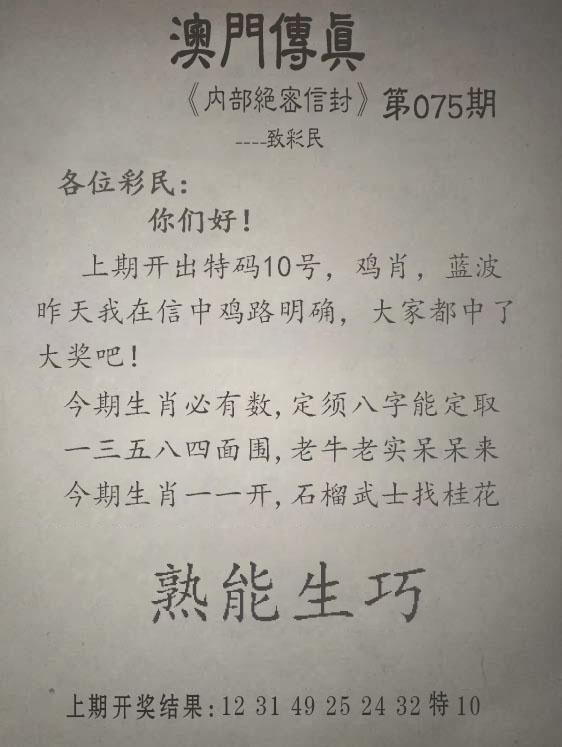 澳門傳真
《内部絕密信封》第075期
----致彩民
各位彩民:
你们好!
上期开出特码10号，鸡肖，蓝波
昨天我在信中鸡路明确，大家都中了
大奖吧!
今期生肖必有数,定须八字能定取
一三五八四面围,老牛老实呆呆来
今期生肖一一开,石榴武士找桂花
熟能生巧
上期开奖结果:12 31 49 25 24 32 特 10